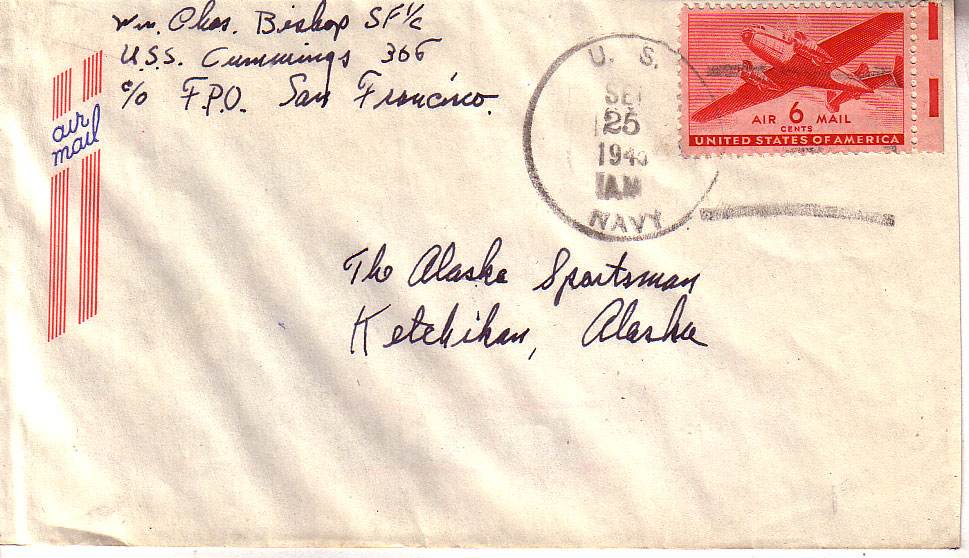 Wm. Chas. Bishop SF 1/c
U.S.S. Cummings 366
c/o F.P.O. San Francisco.
air
mail
U. S.
25
AM
NAVY
AIR 6 MAIL
CENTS
UNITED STATES OF AMERICA
The Alaska Sportsman
Ketchikan, Alaska